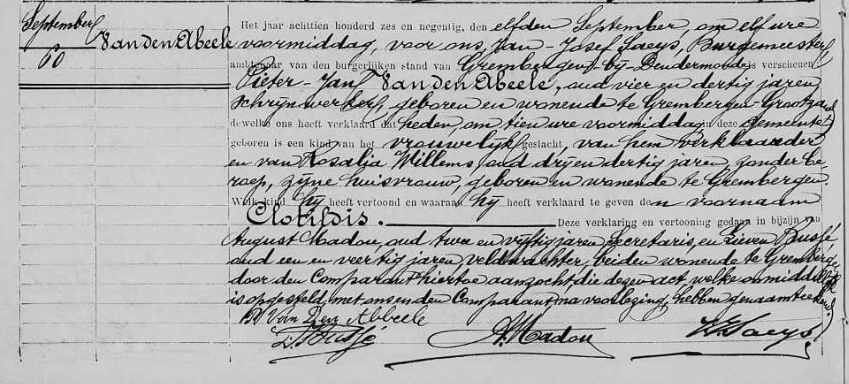 September
60
Van den Abeele
Het jaar achttien honderd zes en negentig, den elfden September, om elf ure
voormiddag, voor ons, Jan-Josef Saeys, Burgemeester
ambtenaar van den burgerlijken stand van Grembergen-bij-Dendermonde is verschenen
Pieter-Jan Van den Abeele, oud vier en dertig jaren
schrijnwerker, geboren en wonende te Grembergen-Grootzand
dewelke ons heeft verklaard dat heden, om tien ure voormiddag in deze gemeente
geboren is een kind van het vrouwelijk geslacht, van hem verklaarder
en van Rosalia Willems, oud drij en dertig jaren, zonder be
roep, zijne huisvrouw, geboren en wonende te Grembergen.
Welk kind hij heeft vertoond en waaraan hij heeft verklaard te geven den voornaam
Clotildis. Deze verklaring en vertooning gedaan in bijzijn van
August Madou, oud twee en vijftig jaren, Secretaris, en Lieven Bussé,
oud een en veertig jaren, veldwachter, beiden wonende te Grembergen
door den Comparant hiertoe aanzocht, die dezen act, welke onmiddellijk
is opgesteld, met ons en den Comparant na voorlezing, hebben genaamteekend
Van Den Abbeele
L. Bussé A. Madou Saeys